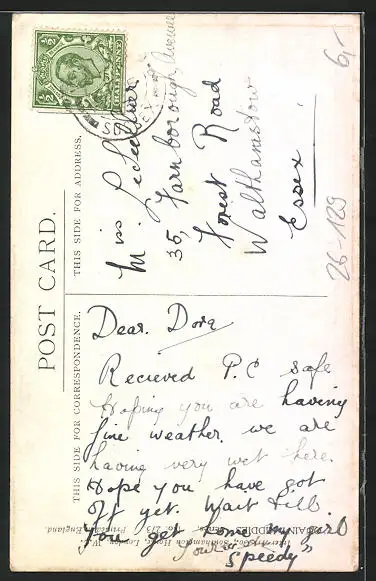 POST CARD.
THIS SIDE FOR CORRESPONDENCE.
THIS SIDE FOR ADDRESS.
Dear. Dora
Recieved P.C safe
Hoping you are having
fine weather. we are
having very wet here.
Hope you have got
off yet. Wait till
you get home my girl
Your
"Speedy"
Miss
35, Farnborough Avenue
Forest Road
Walthamstow
Essex
6,-
26-129
Printed in England.